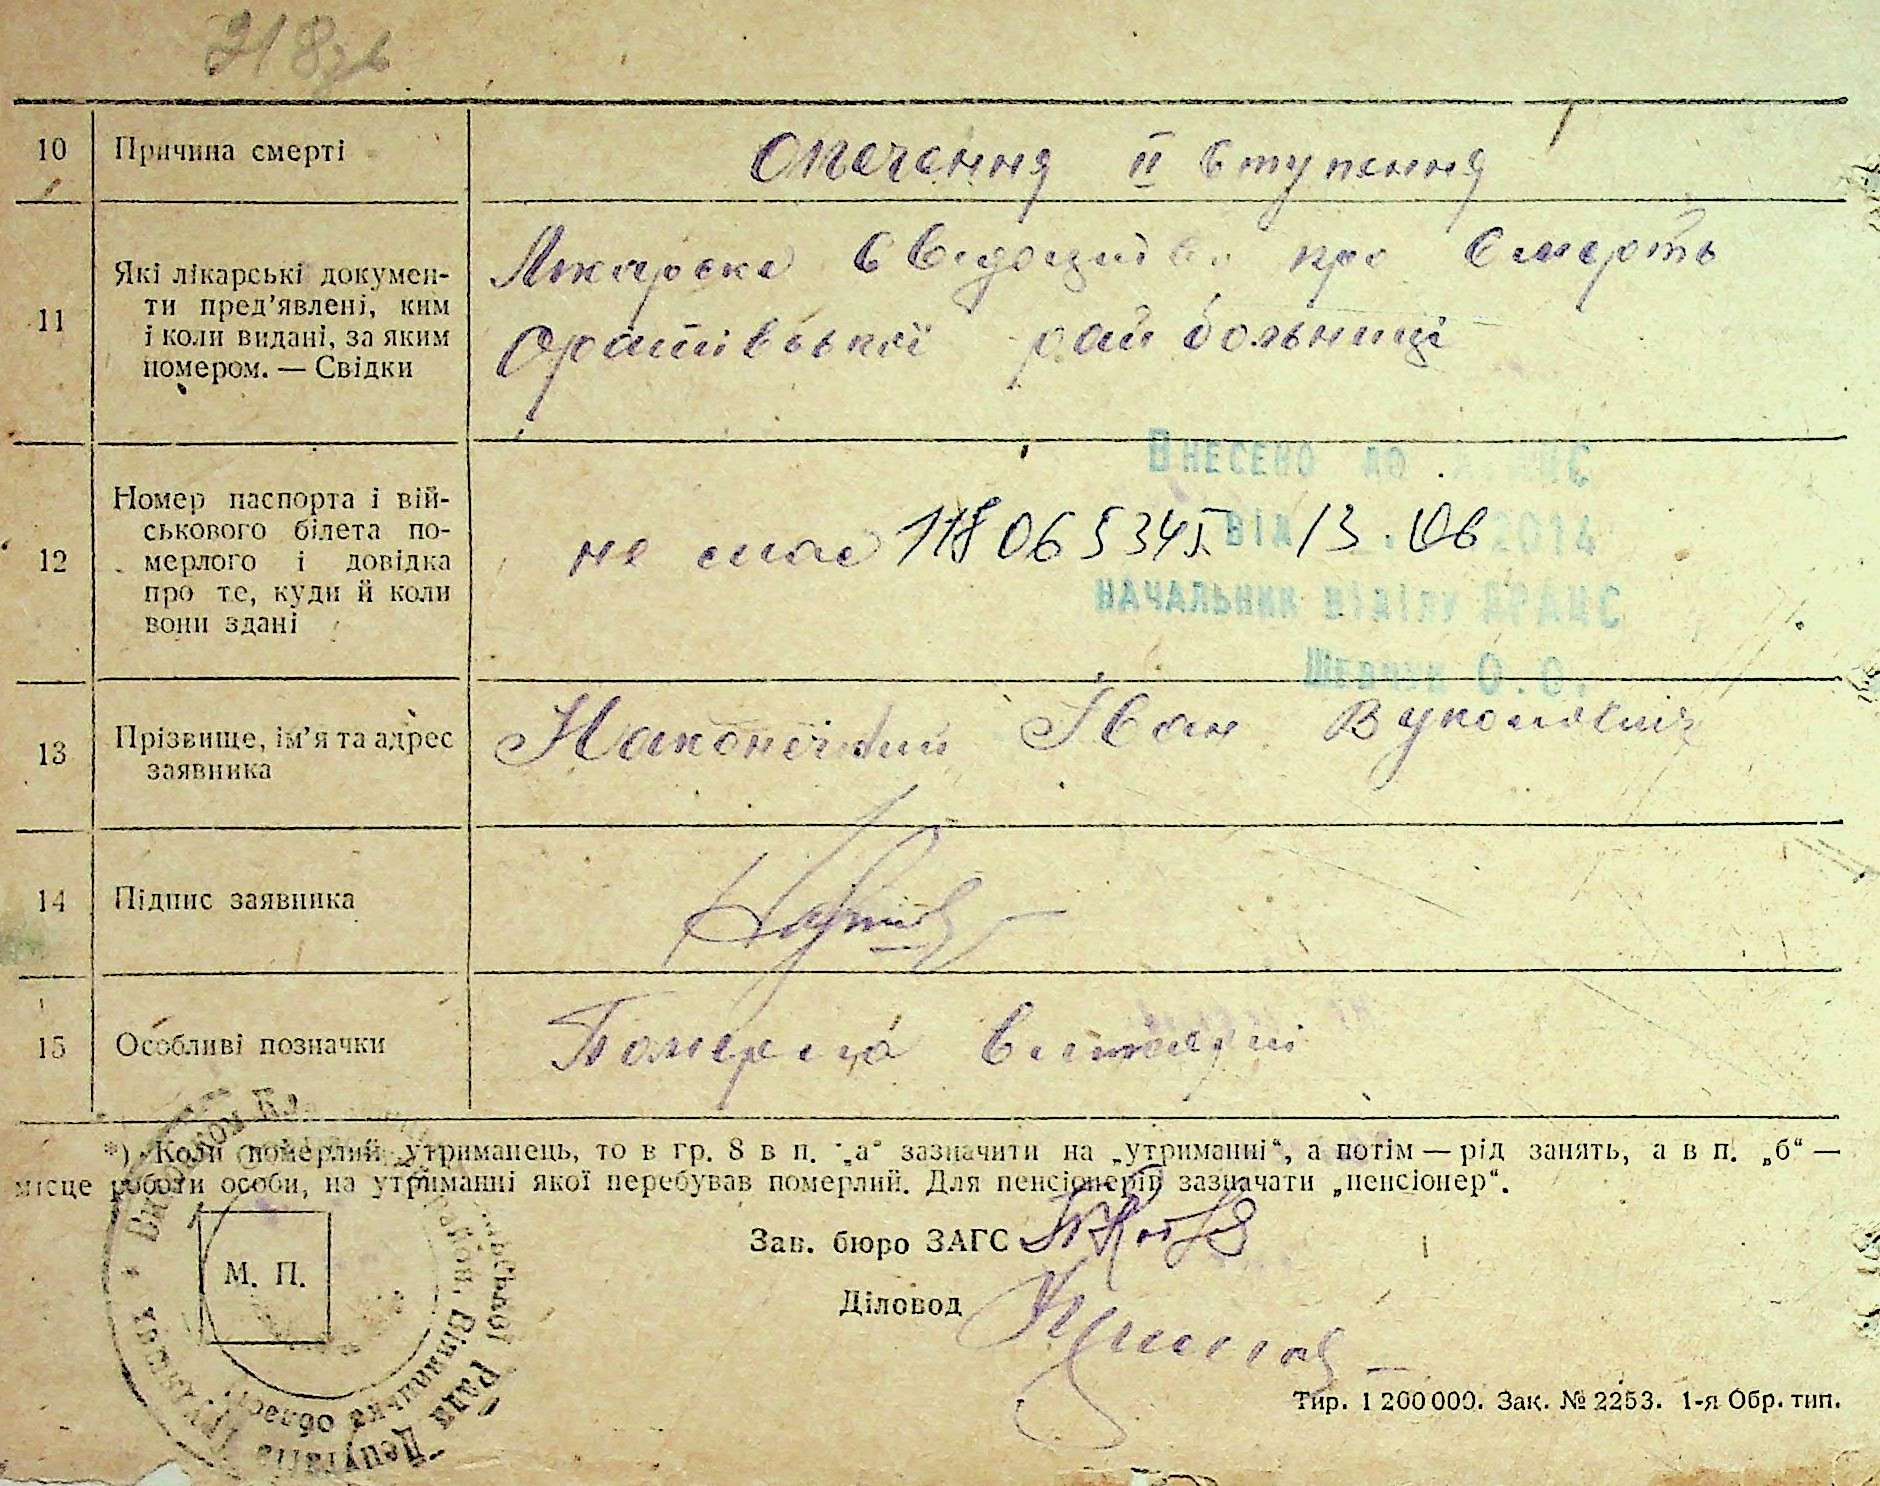 218зв
10 Причина смерті Опечення ІІ ступення
11 Які лікарські докумен-
ти пред'явлені, ким
і коли видані, за яким
номером. — Свідки
Лікарске свидоцтво про смерть
Оратівської рай больниці
12 Номер паспорта і вій-
ськового білета по-
мерлого і довідка
про те, куди й коли
вони здані
не має 118065345 13.06
Внесено до
від 2014
Начальник відділу ДРАЦС
Шевчук О.О.
13 Прізвище, ім'я та адрес
заявника
Наконечний Іван Вуколович
14 Підпис заявника
15 Особливі позначки
Померла
*) Коли померлий утриманець, то в гр. 8 в п. „а“ зазначити на „утриманні“, а потім — рід занять, а в п. „б“ —
місце роботи особи, на утриманні якої перебував померлий. Для пенсіонерів зазначати „пенсіонер“.
Зав. бюро ЗАГС
Діловод
М. П.
Депутатів Трудящих
Вінницька област
Тир. 1 200 000. Зак. № 2253. 1-я Обр. тип.